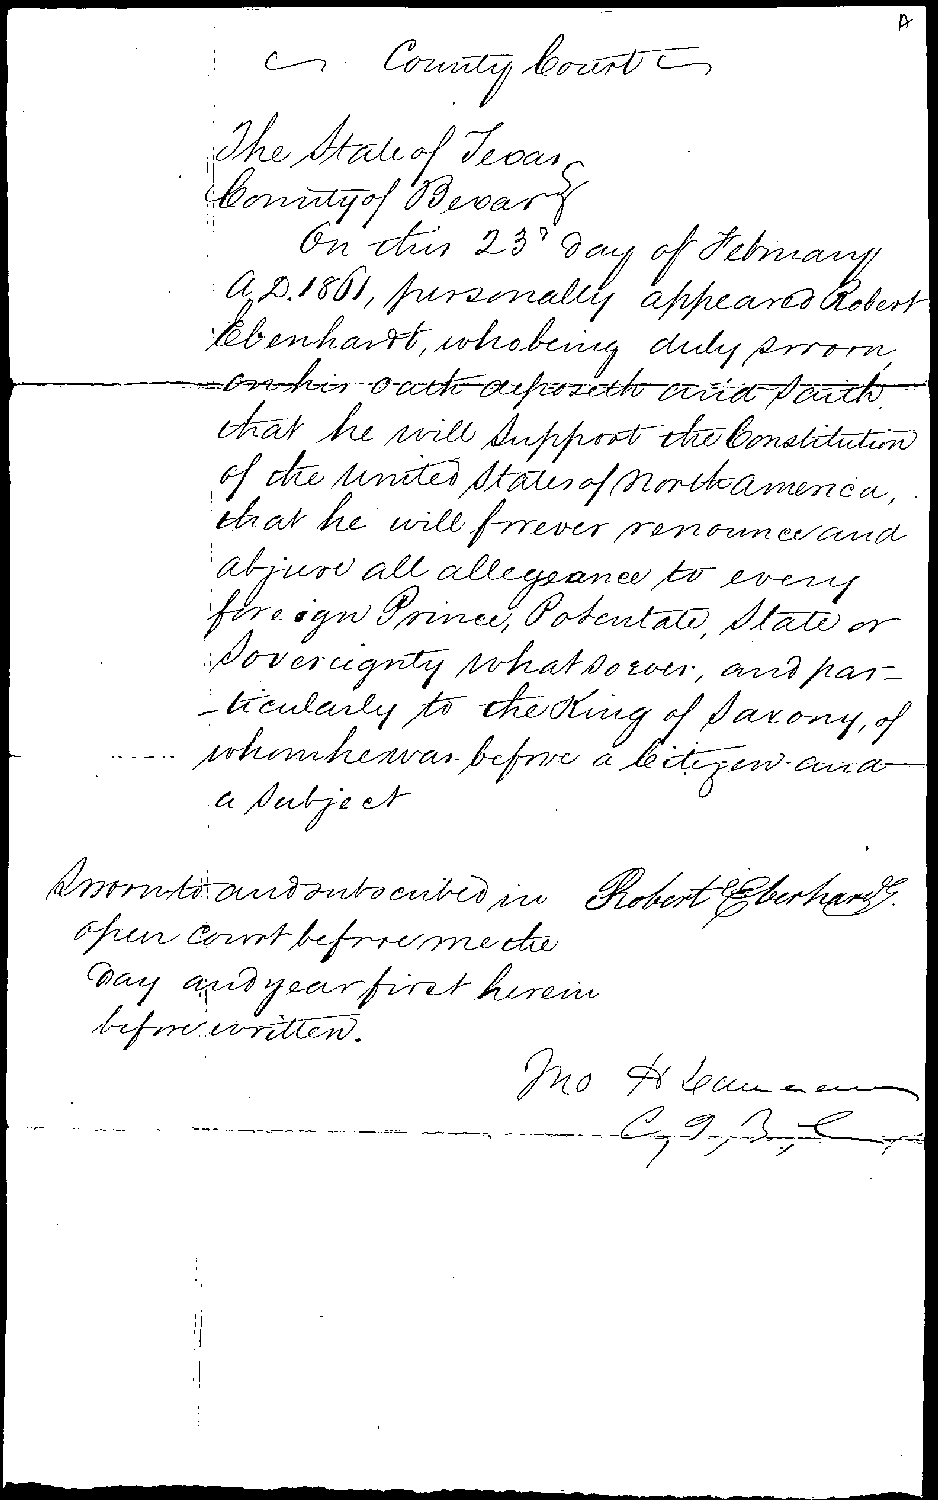 A
County Court
The State of Texas
County of Bexar
On this 23d day of February
A.D. 1861, personally appeared Robert
Ebenhardt, who being duly sworn
on his oath deposeth and saith
that he will support the Constitution
of the United States of North America,
that he will forever renounce and
abjure all allegeance to every
foreign Prince, Potentate, State or
Sovereignty whatsoever, and par-
-ticularly to the King of Saxony, of
whom he was before a Citizen and
a subject
Sworn to and subscribed in Robert Eberhardt.
open court before me the
day and year first herein
before written.
Jno H
C, J, B, C,